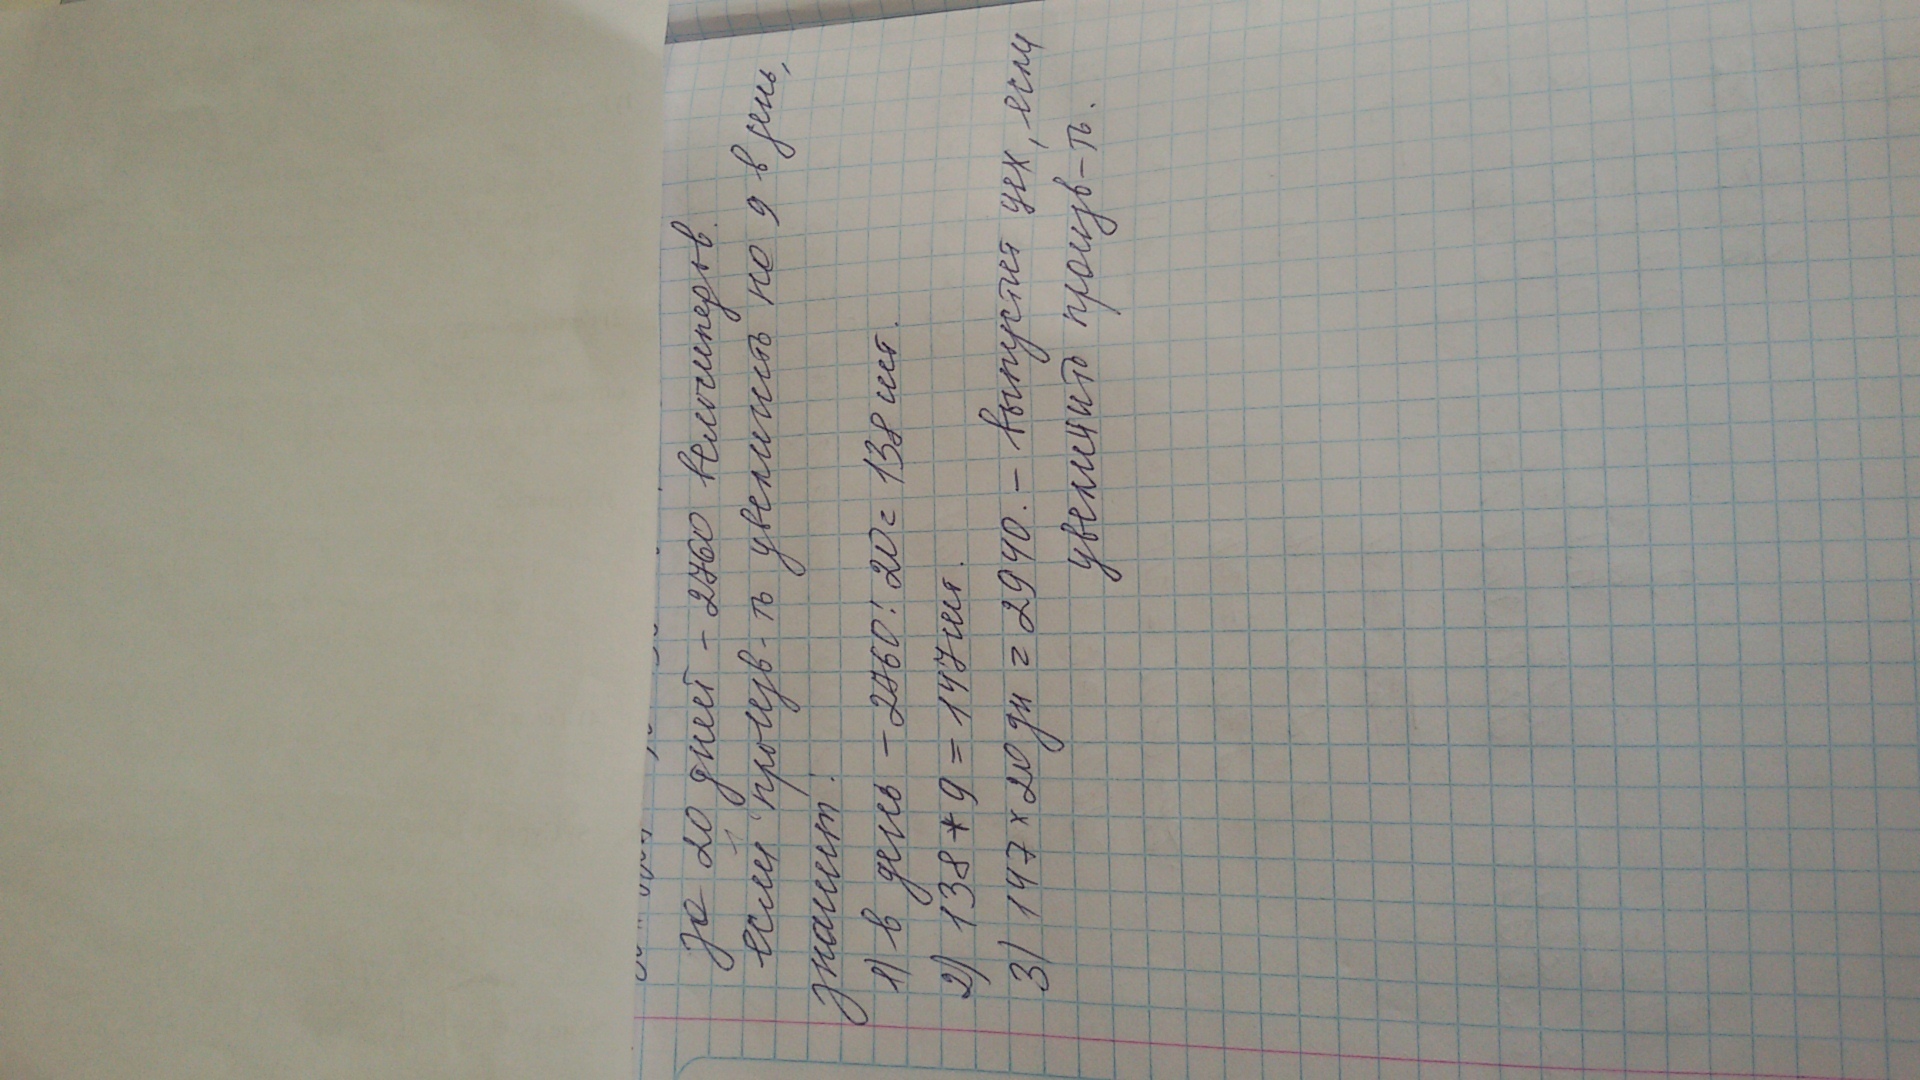 за 20 дней - 2760 велосипедов.
если произв-ть увеличить на 9 в день,
значит:
1) в день - 2760 : 20 = 138 шт.
2) 138 + 9 = 147 шт.
3) 147 × 20 дн = 2940. - выпустит цех, если
увеличить произв-ть.